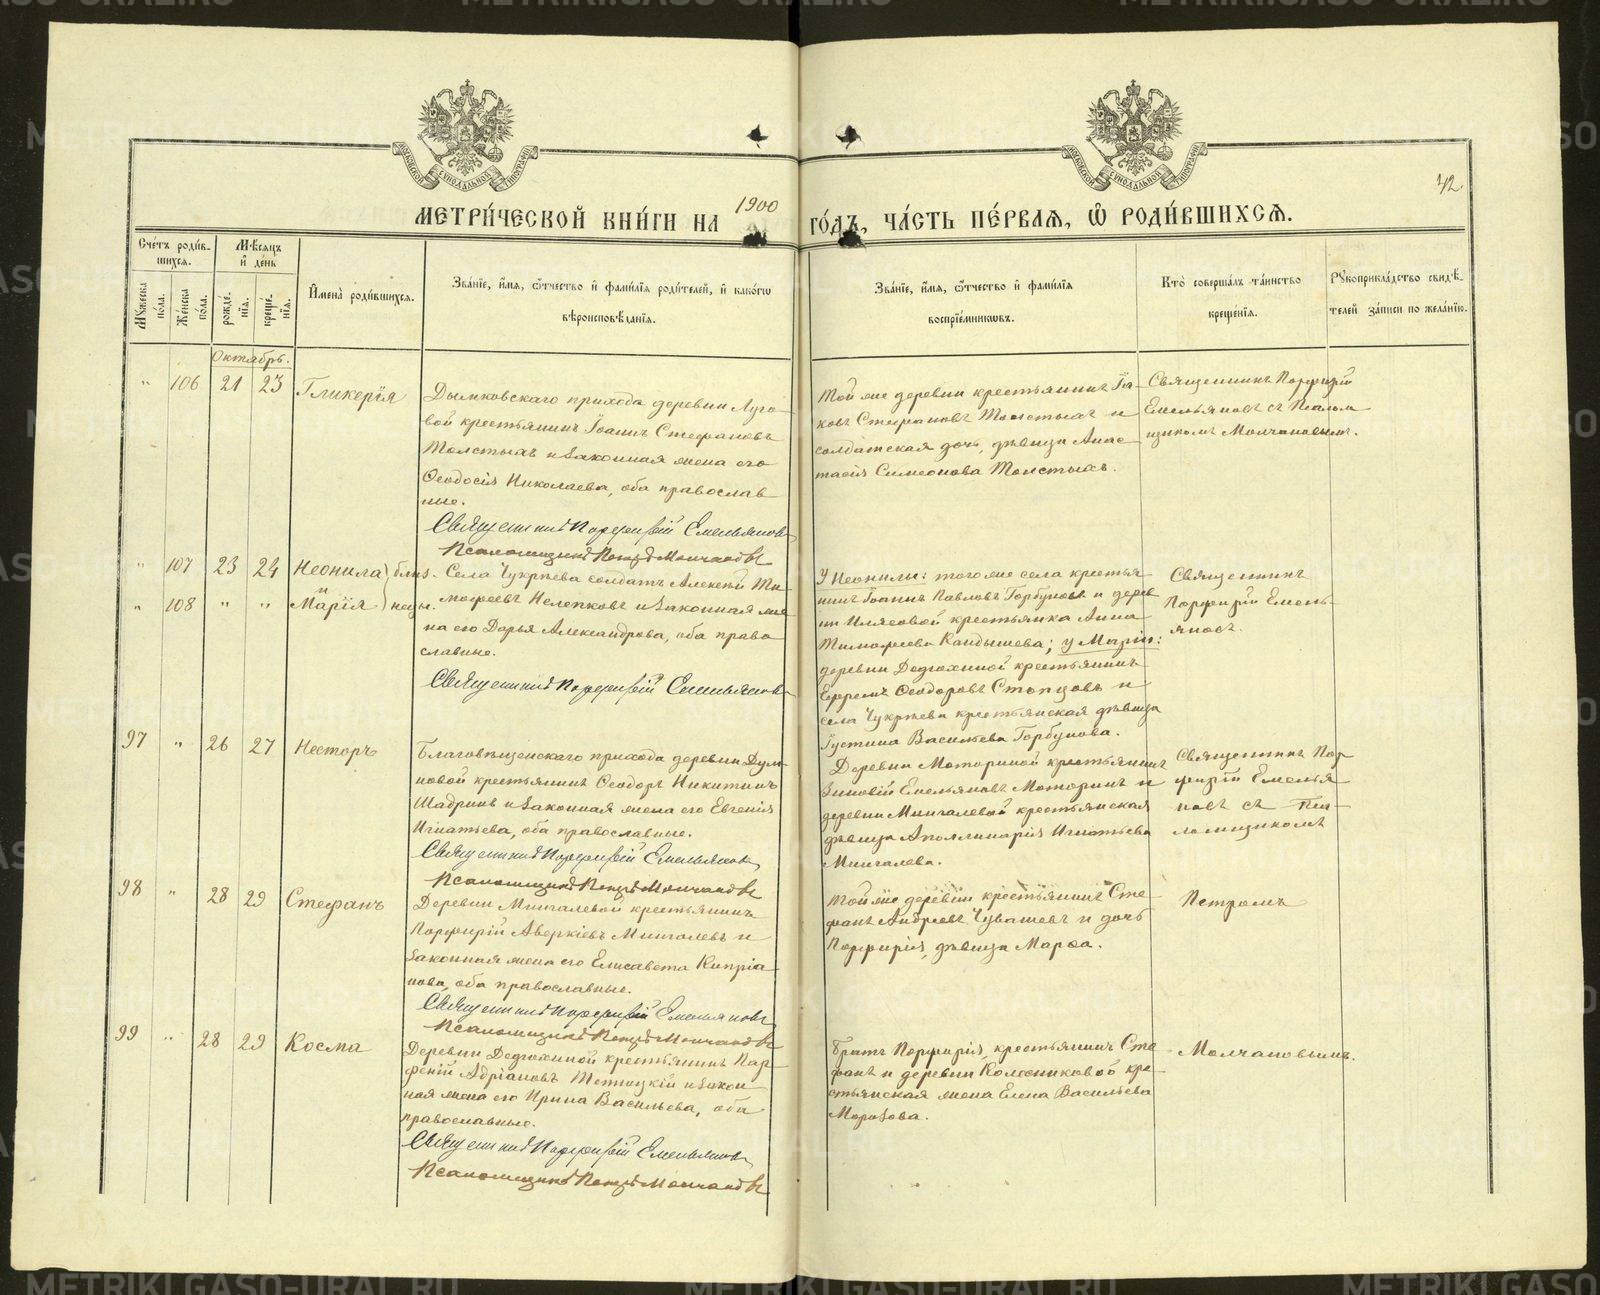 МЕТРИ́ЧЕСКОЙ КНИ́ГИ НА 1900 ГО́ДЪ, ЧА́СТЬ ПЕ́РВАѦ, Ѿ РОДИ́ВШИХСѦ.
42.
Сче́тъ роди́в-
шихсѧ.
Мѣ́сѧцъ
и҆ де́нь
Мꙋ́жеска
по́ла.
Же́нска
по́ла.
рожде́-
нїѧ.
креще́-
нїѧ.
И҆мена̀ роди́вшихсѧ.
Зва́нїе, и҆́мѧ, ѻ҆́тчество и҆ фами́лїѧ роди́телей, и҆ како́гѡ
вѣроисповѣ́данїѧ.
Зва́нїе, и҆́мѧ, ѻ҆́тчество и҆ фами́лїѧ
воспрїе́мникѡвъ.
Кто̀ соверша́лъ та́инство
креще́нїѧ.
Рꙋкоприкла́дство свидѣ́-
телей за́писи по жела́нїю.
Октябрь.
" 106 21 23 Гликерія
Дымковскаго прихода деревни Луго-
вой крестьянинъ Іоаннъ Стефановъ
Толстыхъ и законная жена его
Ѳеодосія Николаева, оба православ-
ные.
Священникъ Порфирій Емельяновъ
Псаломщикъ Петръ Молчановъ
Той же деревни крестьянинъ Іа-
ковъ Стефановъ Толстыхъ и
солдатская дочь, дѣвица Анас-
тасія Симеонова Толстыхъ.
Священникъ Порфирій
Емельяновъ съ Псалом
щикомъ Молчановымъ.
" 107 23 24 Неонила близ-
и
" 108 " " Марія нецы.
Села Чукрѣева солдатъ Алексѣй Ти-
моѳеевъ Нелепковъ и законная же-
на его Дарья Александрова, оба право
славные.
Священникъ Порфирій Емельяновъ
У Неонилы: того же села крестья
нинъ Іоаннъ Павловъ Горбуновъ и дерев
ни Илясовой крестьянка Анна
Тимоѳеева Кандышева; у Маріи:
деревни Дедюхиной крестьянинъ
Ефремъ Ѳеодоровъ Стопцовъ и
села Чукрѣева крестьянская дѣвица
Іустина Васильева Горбунова.
Священникъ
Порфирій Емель-
яновъ.
97 " 26 27 Несторъ
Благовѣщенскаго прихода деревни
новой крестьянинъ Ѳеодоръ Никитинъ
Шадринъ и законная жена его Евгенія
Игнатьева, оба православные.
Священникъ Порфирій Емельяновъ
Псаломщикъ Петръ Молчановъ
Деревни Моториной крестьянинъ
Зиновій Емельяновъ Моторинъ и
деревни Мингалевой крестьянская
дѣвица Аполлинарія Игнатьева
Мингалева.
Священникъ Пор
фирій Емелья
новъ съ Пса-
ломщикомъ
98 " 28 29 Стефанъ
Деревни Мингалевой крестьянинъ
Порфирій Аверкіевъ Мингалевъ и
законная жена его Елисавета Кипріа-
нова, оба православные.
Священникъ Порфирій Емельяновъ
Псаломщикъ Петръ Молчановъ
Той же деревни крестьянинъ Сте
фанъ Андреевъ Чувашевъ и дочь
Порфирія, дѣвица Марѳа.
Петромъ
99 " 28 29 Косма
Деревни Дедюхиной крестьянинъ Пар-
феній Адріановъ и закон
ная жена его Ирина Васильева, оба
православные.
Священникъ Порфирій Емельяновъ
Псаломщикъ Петръ Молчановъ
Братъ Порфирія, крестьянинъ Сте
фанъ и деревни Колесниковой кре-
стьянская жена Елена Васильева
Морозова.
Молчановымъ.
METRIKI.GASO-URAL.RU